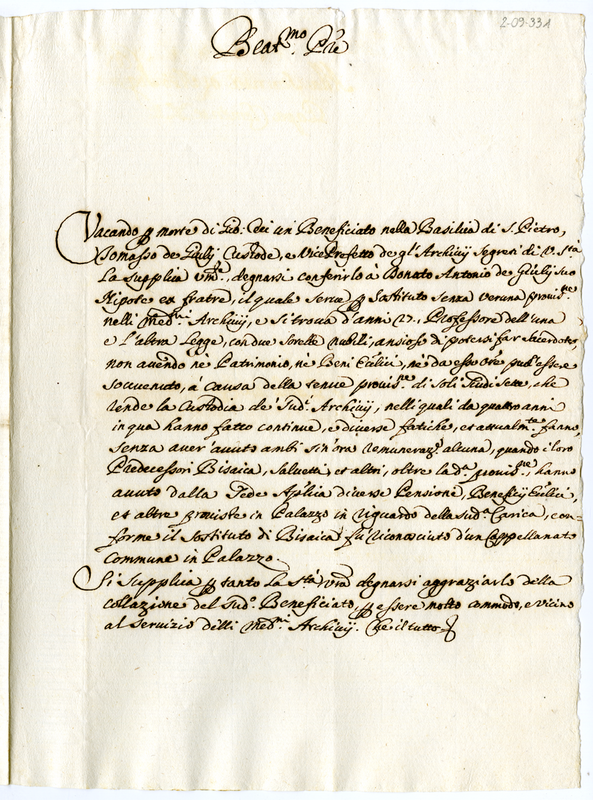 2-09-331
Beat.mo Pre
Vacando p morte di Gio: un Beneficiato nella Basilica di S. Pietro,
Tomasso de Giulij Custode, e Vice Prefetto de gl'Archivij Segreti di V. Sta
La supplica um.te degnarsi conferirlo à Donato Antonio de Giulij suo
Nipote ex fratre, il quale serve p Sostituto senza veruna provis.ne
nelli Med.mi Archivij, e si trova d'anni Professore dell'una
e L'altra Legge, con due sorelle nubili, ansioso di potersi far sacerdote,
non avendo nè Patrimonio, nè Beni nè da esso Ore può essere
sovvenuto, à causa della tenue provis.ne di soli scudi sette, che
rende la Custodia de' Sud.i Archivij, nelli quali da quattro anni
in qua hanno fatto continue, e diverse fatiche, et attualm.te fanno,
senza aver'avuto ambi sin'ora remuneraz.e alcuna, quando i loro
Predecessori Bisaica, Salvetti, et altri, oltre la d.a provis.ne, hanno
avuto dalla Sede Aplica diverse Pensioni, Beneficij
et altre proviste in Palazzo in riguardo della sud.a Carica, con=
forme il Sostituto di Bisaica fù riconosciuto d'un Cappellanato
Commune in Palazzo.
Si supplica p tanto la S.tà V.ra degnarsi aggraziarlo della
collazione del Sud.o Beneficiato, p essere molto commodo, e vicino
al servizio delli Med.mi Archivij. Che il tutto